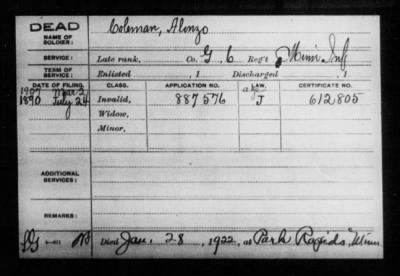 DEAD
NAME OF SOLDIER: Coleman, Alonzo
SERVICE: Late rank, Co. G, 6 Reg't Minn Inf
TERM OF SERVICE: Enlisted , 1 Discharged , 1
DATE OF FILING. CLASS. APPLICATION NO. LAW. CERTIFICATE NO.
1907 Mar 2
1890 July 24 Invalid, 887576 J 612805
Widow,
Minor,
ADDITIONAL SERVICES:
REMARKS:
Died Jan. 28, 1922, at Park Rapids, Minn